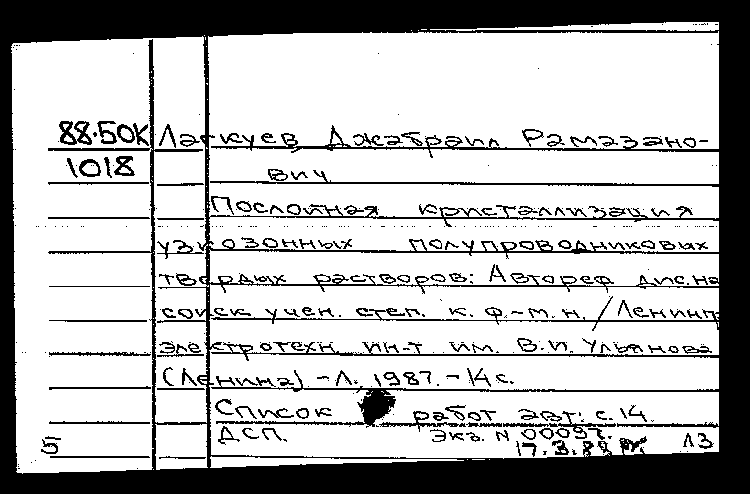 88.50К Лагкуев Джабраил Рамазано-
1018 вич
Послойная кристаллизация
узкозонных полупроводниковых
твердых растворов: Автореф дис. на
соиск учен. степ. к. ф.-м. н. / Ленинг
электротехн. ин-т им. В. И. Ульянова
(Ленина) - Л., 1987. - 14 с.
Список работ авт.: с. 14
ДСП. Экз. N 00097.
5 17.3.88 ЛЗ